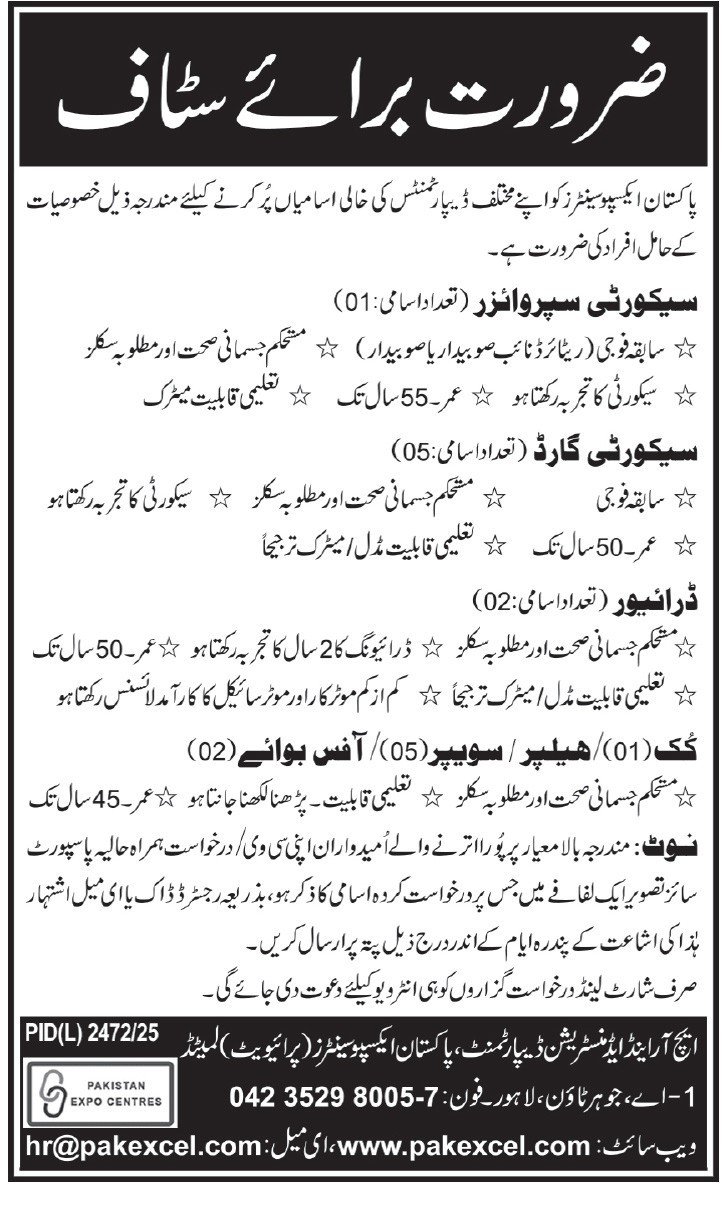 ضرورت برائے سٹاف
پاکستان ایکسپو سینٹرز کو اپنے مختلف ڈیپارٹمنٹس کی خالی اسامیاں پُر کرنے کیلئے مندرجہ ذیل خصوصیات
کے حامل افراد کی ضرورت ہے۔
سیکورٹی سپروائزر (تعداد اسامی:01)
☆ سابقہ فوجی (ریٹائرڈ نائب صوبیدار یا صوبیدار) ☆ مستحکم جسمانی صحت اور مطلوبہ سکلز
☆ سیکورٹی کا تجربہ رکھتا ہو ☆ عمر۔55 سال تک ☆ تعلیمی قابلیت میٹرک
سیکورٹی گارڈ (تعداد اسامی:05)
☆ سابقہ فوجی ☆ مستحکم جسمانی صحت اور مطلوبہ سکلز ☆ سیکورٹی کا تجربہ رکھتا ہو
☆ عمر۔50 سال تک ☆ تعلیمی قابلیت مڈل/میٹرک ترجیحاً
ڈرائیور (تعداد اسامی:02)
☆ مستحکم جسمانی صحت اور مطلوبہ سکلز ☆ ڈرائیونگ کا 2 سال کا تجربہ رکھتا ہو ☆ عمر۔50 سال تک
☆ تعلیمی قابلیت مڈل/میٹرک ترجیحاً ☆ کم از کم موٹر کار اور موٹر سائیکل کا کارآمد لائسنس رکھتا ہو
کُک (01)/ھیلپر / سویپر (05)/ آفس بوائے (02)
☆ مستحکم جسمانی صحت اور مطلوبہ سکلز ☆ تعلیمی قابلیت۔ پڑھنا لکھنا جانتا ہو ☆ عمر۔45 سال تک
نوٹ: مندرجہ بالا معیار پر پُورا اترنے والے اُمیدواران اپنی سی وی/ درخواست ہمراہ حالیہ پاسپورٹ
سائز تصویر ایک لفافے میں جس پر درخواست کردہ اسامی کا ذکر ہو، بذریعہ رجسٹرڈ ڈاک یا ای میل اشتہار
ہٰذا کی اشاعت کے پندرہ ایام کے اندر درج ذیل پتہ پر ارسال کریں۔
صرف شارٹ لینڈ درخواست گزاروں کو ہی انٹرویو کیلئے دعوت دی جائے گی۔
PID(L) 2472/25
ایچ آر اینڈ ایڈمنسٹریشن ڈیپارٹمنٹ، پاکستان ایکسپو سینٹرز (پرائیویٹ) لمیٹڈ
1-اے، جوہر ٹاؤن، لاہور۔ فون: 042 3529 8005-7
PAKISTAN
EXPO CENTRES
ویب سائٹ: www.pakexcel.com، ای میل: hr@pakexcel.com